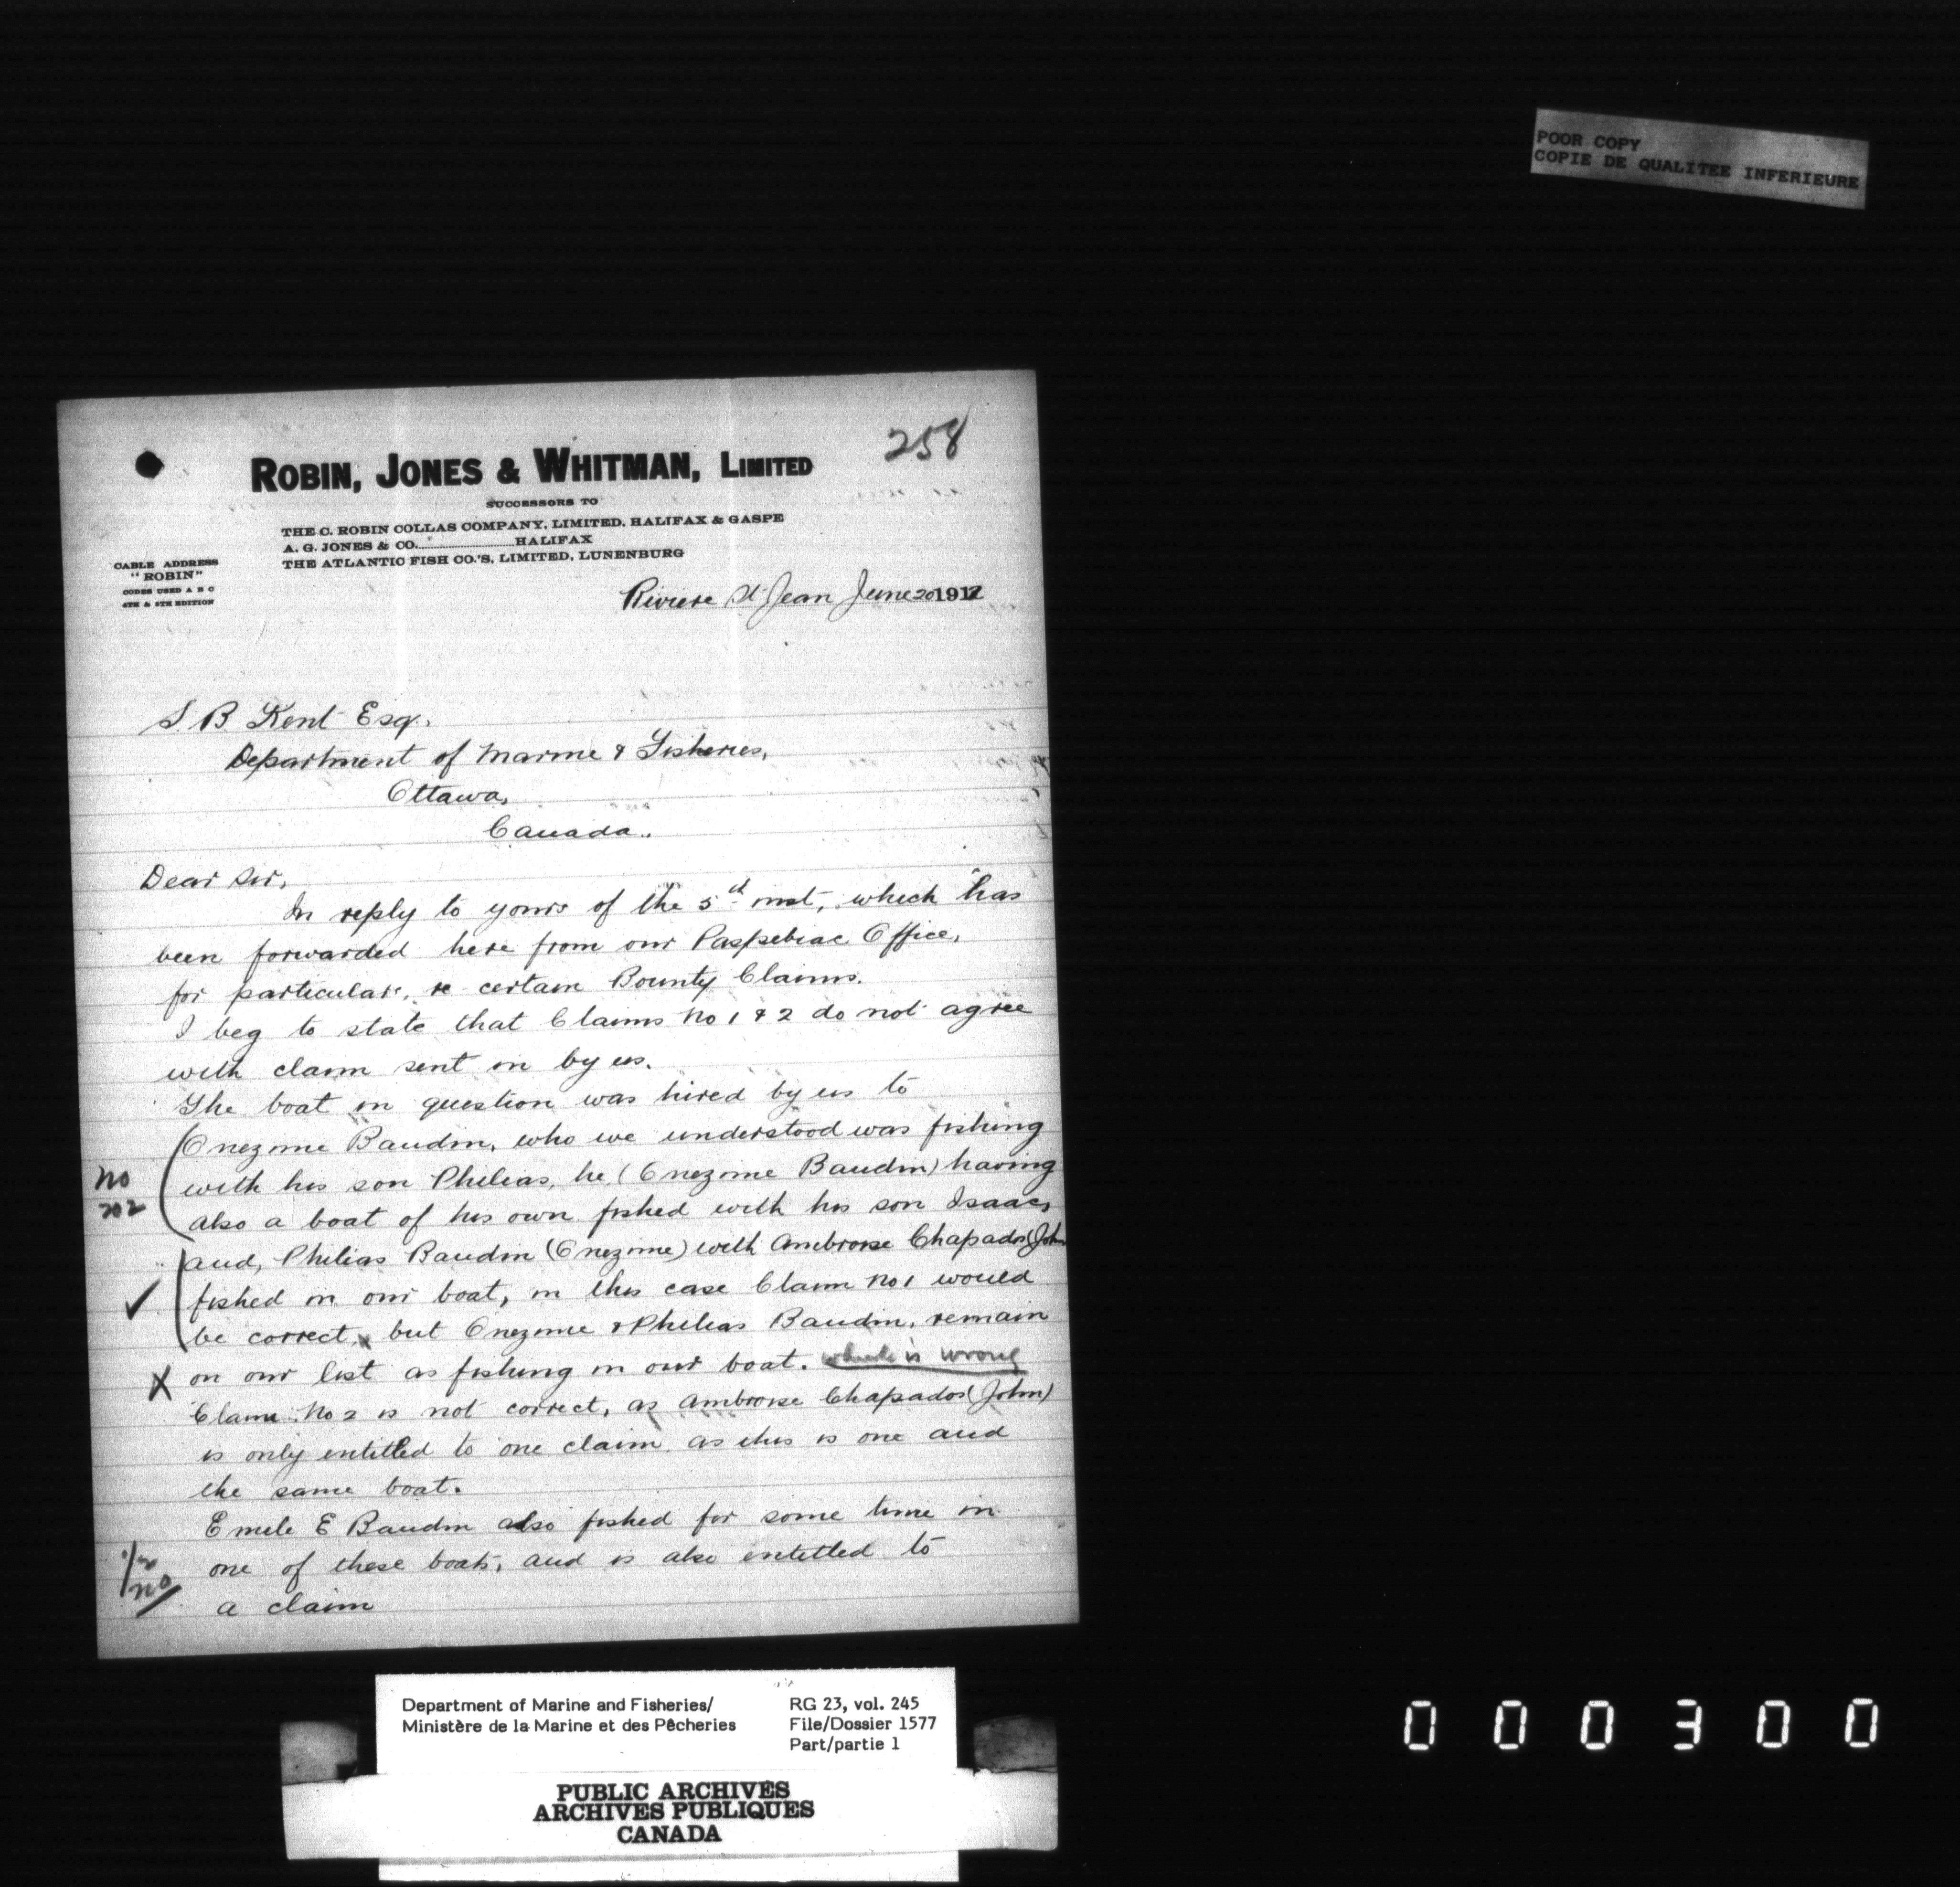 POOR COPY
COPIE DE QUALITEE INFERIEURE
258
ROBIN, JONES & WHITMAN, LIMITED
SUCCESSORS TO
THE C. ROBIN COLLAS COMPANY, LIMITED, HALIFAX & GASPE
A. G. JONES & CO. HALIFAX
THE ATLANTIC FISH CO.'S, LIMITED, LUNENBURG
CABLE ADDRESS
"ROBIN"
CODES USED A B C
4TH & 5TH EDITION
Riviere St Jean June 20 1912
S. B. Kent Esq.,
Department of Marine & Fisheries,
Ottawa,
Canada..
Dear Sir,
In reply to yours of the 5th inst, which has
been forwarded here from our Paspebiac Office,
for particulars, re certain Bounty Claims.
I beg to state that Claims No 1 & 2 do not agree
with claim sent in by us.
The boat in question was hired by us to
Onezime Baudin, who we understood was fishing
with his son Phileas, he (Onezime Baudin) having
also a boat of his own fished with his son Isaac,
no
202
and, Philias Baudin (Onezime) with Ambroise Chapados (John
fished in our boat, in this case Claim No 1 would
✓
be correct, but Onezime & Phileas Baudin, remain
X on our list as fishing in our boat. which is wrong
Claim No 2 is not correct, as Ambroise Chapados (John)
is only entitled to one claim, as this is one and
the same boat.
Emile E Baudin also fished for some time in
one of these boats, and is also entitled to
no
a claim
Department of Marine and Fisheries/
Ministère de la Marine et des Pêcheries
RG 23, vol. 245
File/Dossier 1577
Part/partie 1
PUBLIC ARCHIVES
ARCHIVES PUBLIQUES
CANADA
000300